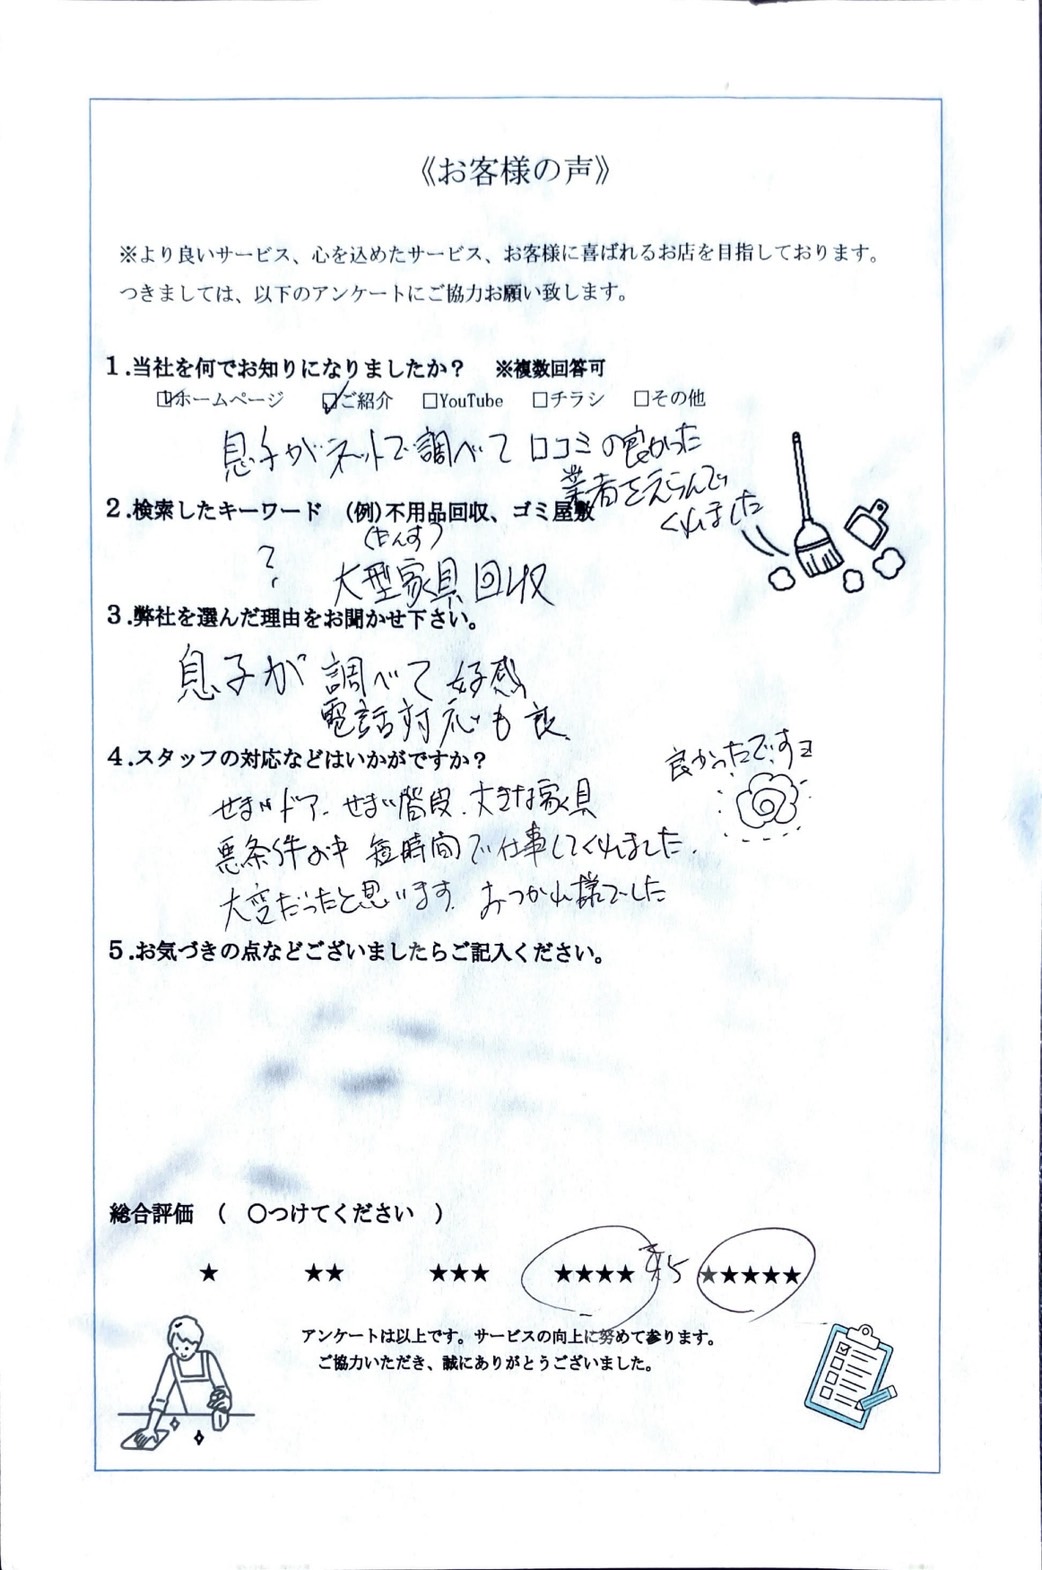 《お客様の声》
※より良いサービス、心を込めたサービス、お客様に喜ばれるお店を目指しております。
つきましては、以下のアンケートにご協力お願い致します。
1.当社を何でお知りになりましたか? ※複数回答可
□ホームページ ☑ご紹介 □YouTube □チラシ □その他
息子がネットで調べて口コミの良かった
業者をえらんで
くれました
2.検索したキーワード (例)不用品回収、ゴミ屋敷
(たんす)
? 大型家具回収
3.弊社を選んだ理由をお聞かせ下さい。
息子が調べて好感
電話対応も良
4.スタッフの対応などはいかがですか?
良かったですヨ
せまいドア、せまい階段、大きな家具
悪条件の中 短時間で仕事してくれました。
大変だったと思います。おつかれ様でした
5.お気づきの点などございましたらご記入ください。
総合評価 ( ○つけてください )
★ ★★ ★★★ ★★★★ ★★★★★
アンケートは以上です。サービスの向上に努めて参ります。
ご協力いただき、誠にありがとうございました。